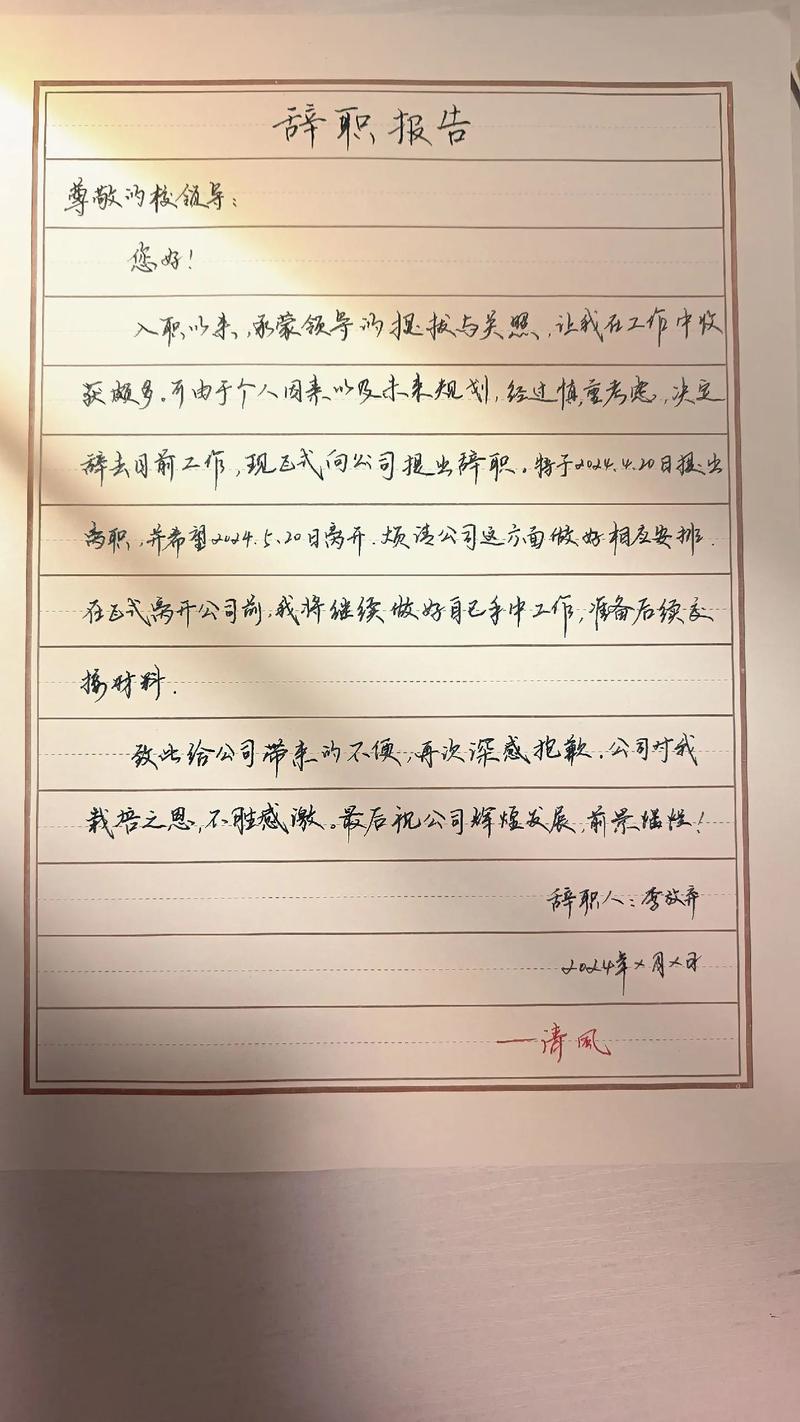 辞职报告
尊敬的校领导：
您好！
入职以来，承蒙领导的提拔与关照，让我在工作中收
获颇多。可由于个人因素以及未来规划，经过慎重考虑，决定
辞去目前工作，现正式向公司提出辞职。特于2024.4.20日提出
离职，并希望2024.5.20日离开.烦请公司这方面做好相应安排.
在正式离开公司前，我将继续做好自己手中工作，准备后续交
接材料.
致此给公司带来的不便，再次深感抱歉.公司对我
栽培之恩，不胜感激。最后祝公司辉煌发展，前景！
辞职人：李放弃
2024年×月×日
—清風